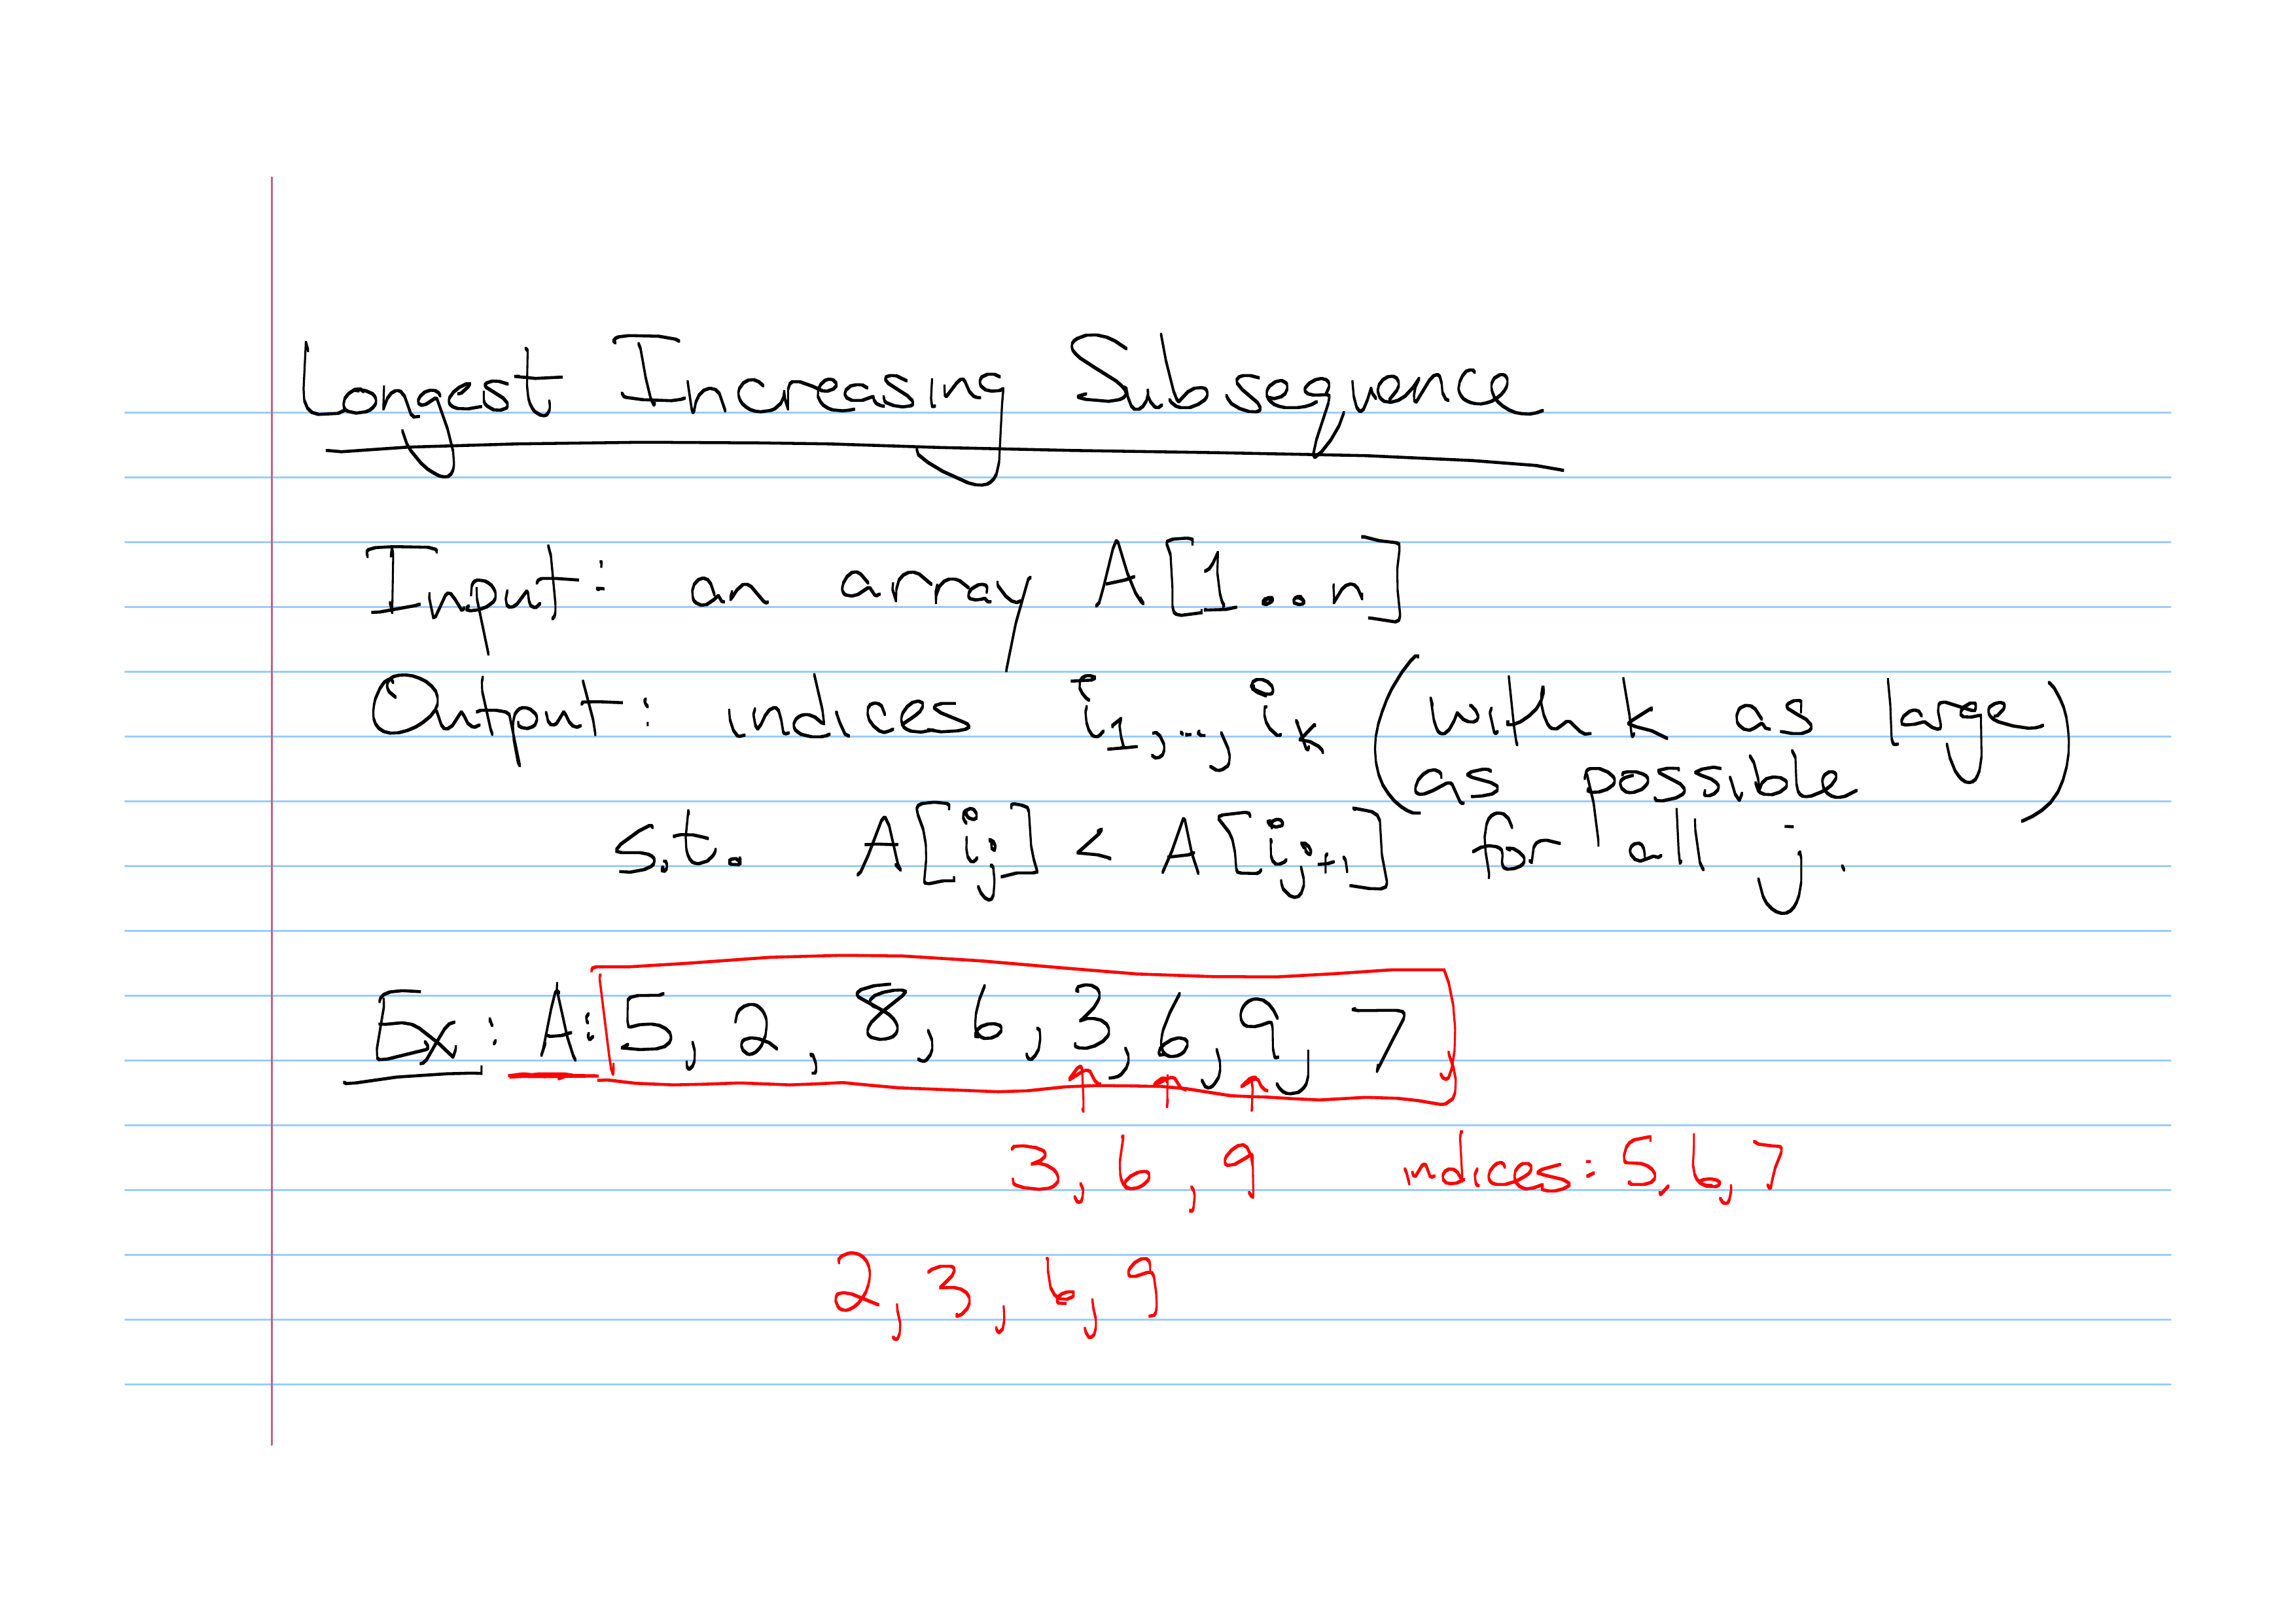 Longest Increasing Subsequence
Input: an array A[1..n]
Output: indices i₁,...,iₖ (with k as large
as possible)
s.t. A[i_j] < A[i_{j+1}] for all j.
Ex: A: 5, 2, 8, 6, 3, 6, 9, 7
3, 6, 9 indices: 5, 6, 7
2, 3, 6, 9